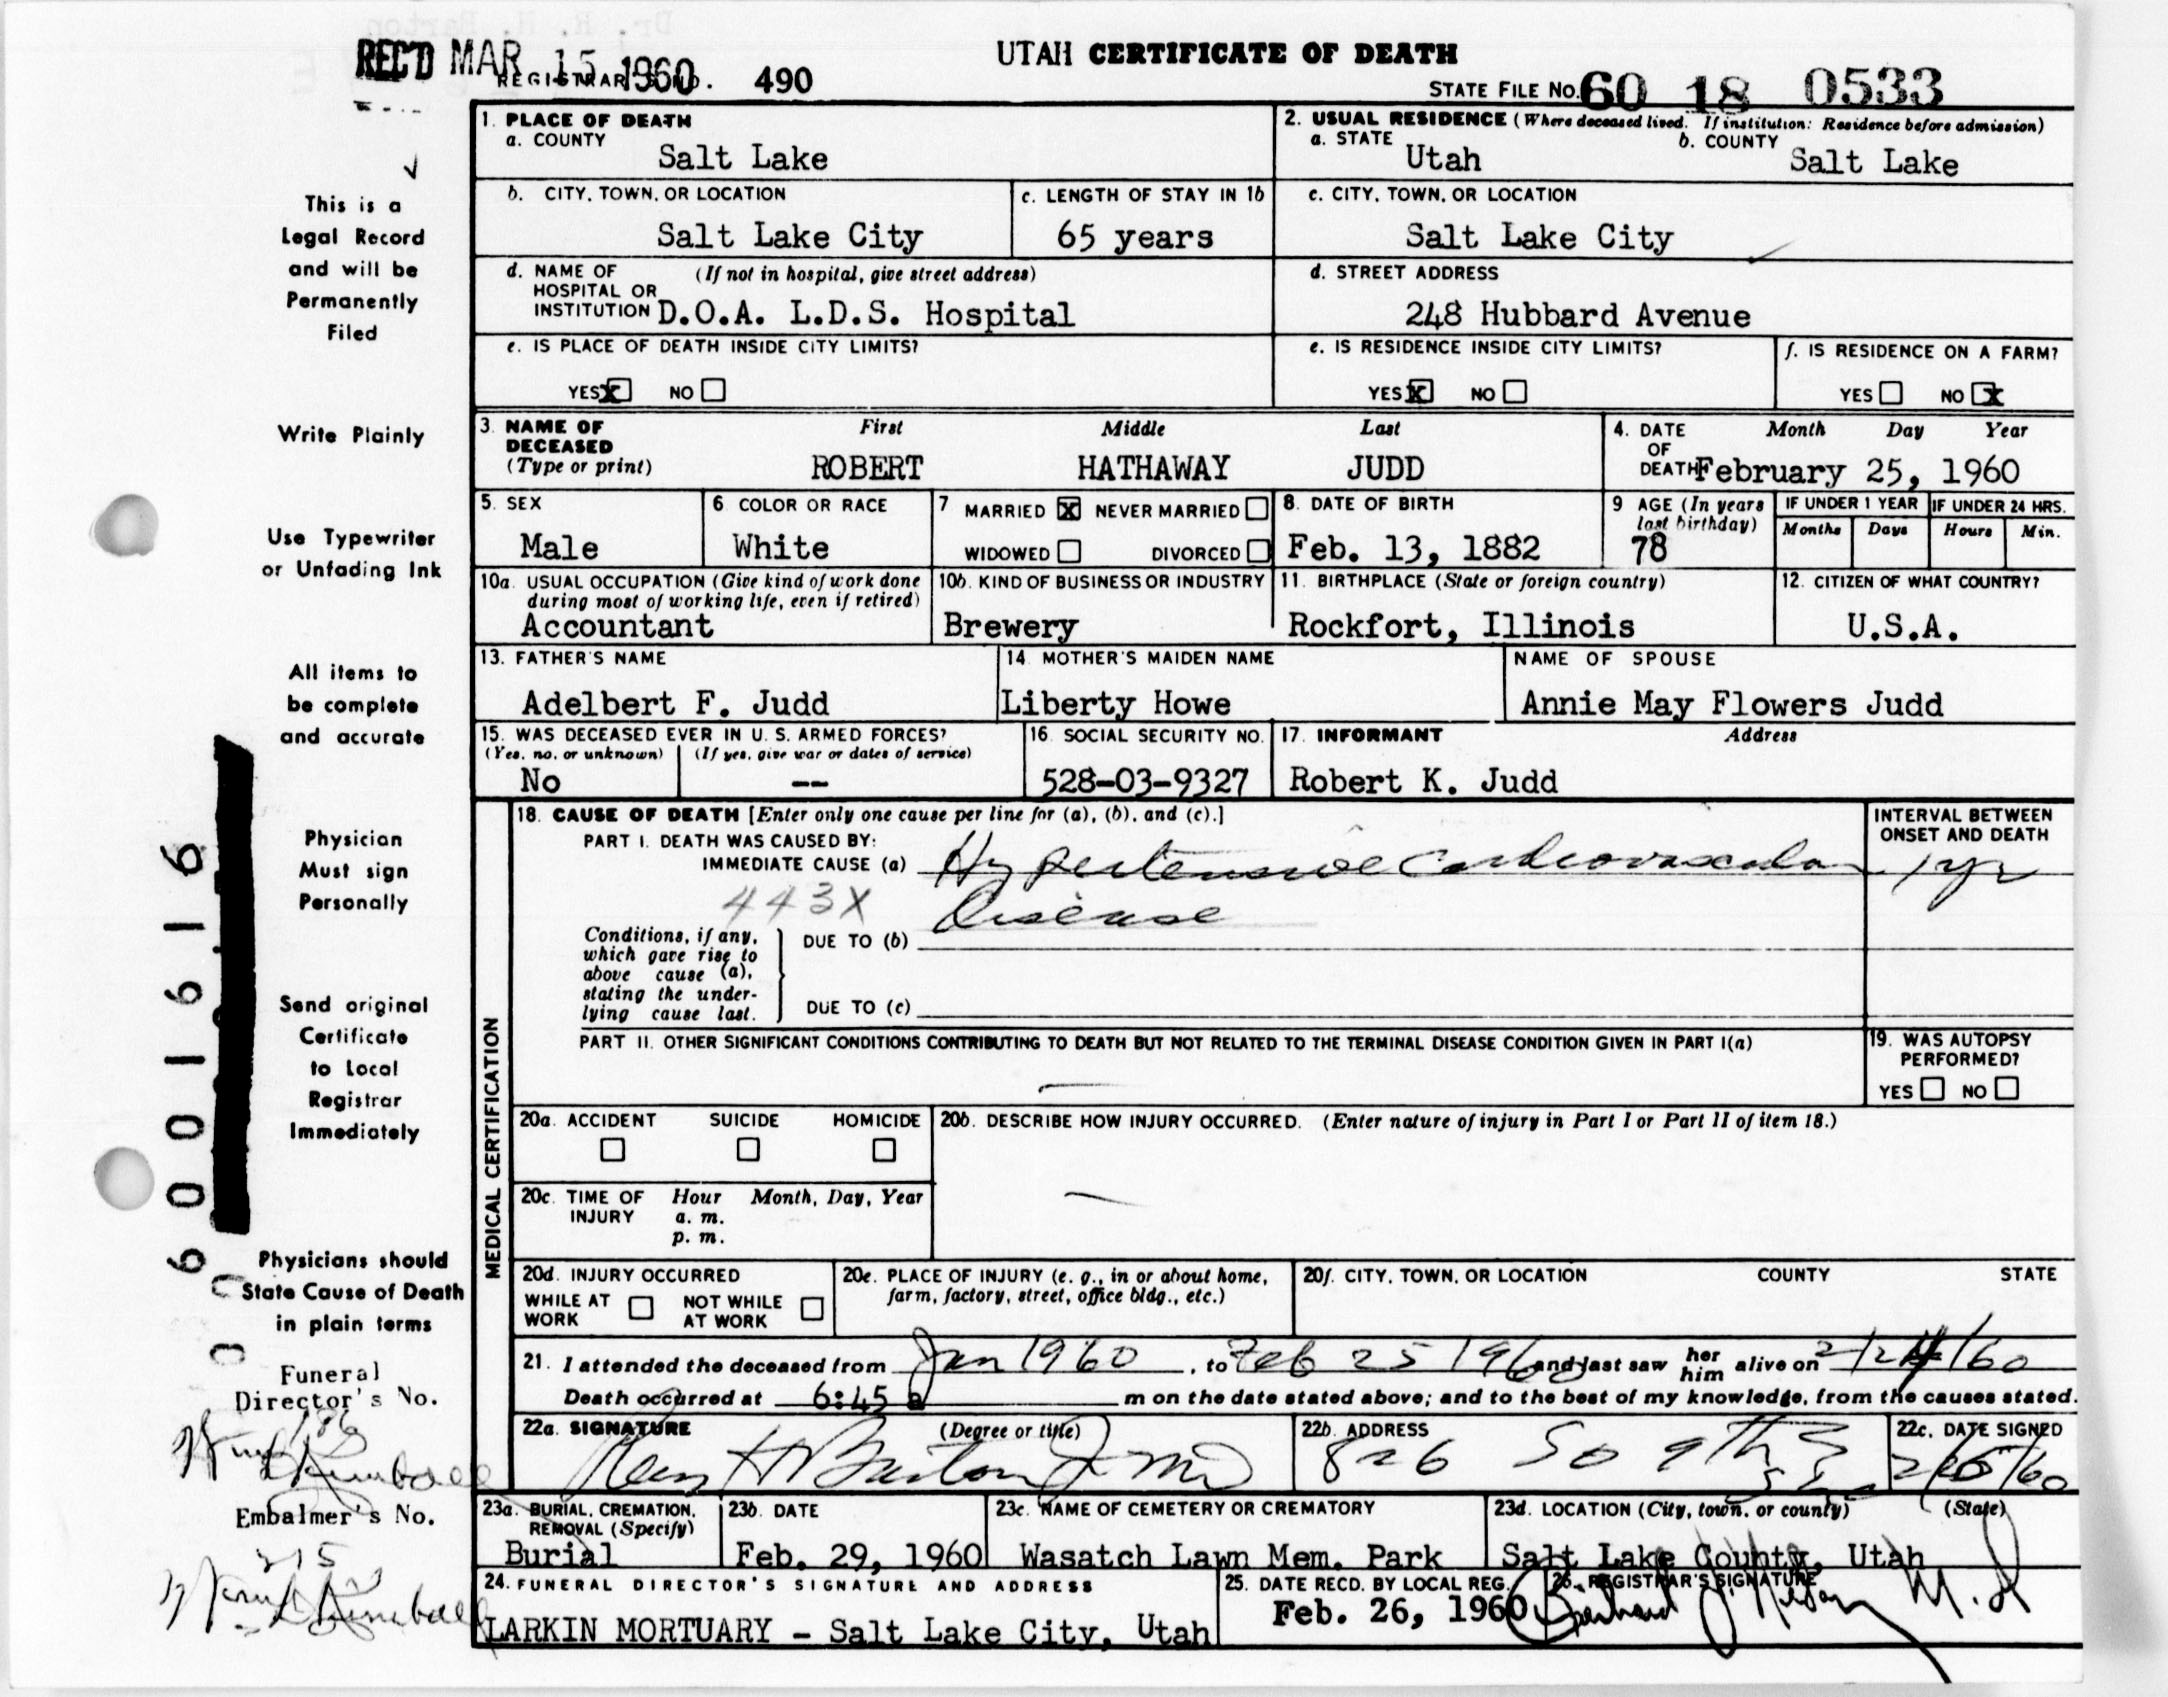 Dr. R. H. Barton
REC'D MAR 15 1960
REGISTRAR'S NO. 490
UTAH CERTIFICATE OF DEATH
STATE FILE No. 60 18 0533
This is a
Legal Record
and will be
Permanently
Filed
Write Plainly
Use Typewriter
or Unfading Ink
All items to
be complete
and accurate
Physician
Must sign
Personally
Send original
Certificate
to Local
Registrar
Immediately
Physicians should
State Cause of Death
in plain terms
Funeral
Director's No.
186
Kimball
Embalmer's No.
215
Kimball
6001616
1. PLACE OF DEATH
a. COUNTY
Salt Lake
2. USUAL RESIDENCE (Where deceased lived. If institution: Residence before admission)
a. STATE Utah b. COUNTY Salt Lake
b. CITY, TOWN, OR LOCATION
Salt Lake City
c. LENGTH OF STAY IN 1b
65 years
c. CITY, TOWN, OR LOCATION
Salt Lake City
d. NAME OF (If not in hospital, give street address)
HOSPITAL OR
INSTITUTION D.O.A. L.D.S. Hospital
d. STREET ADDRESS
248 Hubbard Avenue
e. IS PLACE OF DEATH INSIDE CITY LIMITS?
YES X NO
e. IS RESIDENCE INSIDE CITY LIMITS?
YES X NO
f. IS RESIDENCE ON A FARM?
YES NO X
3. NAME OF DECEASED (Type or print)
First Middle Last
ROBERT HATHAWAY JUDD
4. DATE OF DEATH Month Day Year
February 25, 1960
5. SEX
Male
6 COLOR OR RACE
White
7 MARRIED X NEVER MARRIED
WIDOWED DIVORCED
8. DATE OF BIRTH
Feb. 13, 1882
9 AGE (In years last birthday)
78
IF UNDER 1 YEAR
Months Days
IF UNDER 24 HRS.
Hours Min.
10a. USUAL OCCUPATION (Give kind of work done
during most of working life, even if retired)
Accountant
10b. KIND OF BUSINESS OR INDUSTRY
Brewery
11. BIRTHPLACE (State or foreign country)
Rockfort, Illinois
12. CITIZEN OF WHAT COUNTRY?
U.S.A.
13. FATHER'S NAME
Adelbert F. Judd
14 MOTHER'S MAIDEN NAME
Liberty Howe
NAME OF SPOUSE
Annie May Flowers Judd
15. WAS DECEASED EVER IN U. S. ARMED FORCES?
(Yes, no, or unknown) (If yes, give war or dates of service)
No --
16. SOCIAL SECURITY NO.
528-03-9327
17. INFORMANT Address
Robert K. Judd
MEDICAL CERTIFICATION
18. CAUSE OF DEATH [Enter only one cause per line for (a), (b), and (c).]
INTERVAL BETWEEN
ONSET AND DEATH
PART I. DEATH WAS CAUSED BY:
IMMEDIATE CAUSE (a) Hypertensive Cardiovascular 1 yr
443X Disease
Conditions, if any,
which gave rise to
above cause (a),
stating the under-
lying cause last.
DUE TO (b)
DUE TO (c)
PART II. OTHER SIGNIFICANT CONDITIONS CONTRIBUTING TO DEATH BUT NOT RELATED TO THE TERMINAL DISEASE CONDITION GIVEN IN PART I(a)
19. WAS AUTOPSY
PERFORMED?
YES NO
20a. ACCIDENT SUICIDE HOMICIDE
20b. DESCRIBE HOW INJURY OCCURRED. (Enter nature of injury in Part I or Part II of item 18.)
20c. TIME OF INJURY Hour Month, Day, Year
a. m.
p. m.
20d. INJURY OCCURRED
WHILE AT WORK NOT WHILE AT WORK
20e. PLACE OF INJURY (e. g., in or about home,
farm, factory, street, office bldg., etc.)
20f. CITY, TOWN, OR LOCATION COUNTY STATE
21. I attended the deceased from Jan 1960, to Feb 25 1960 and last saw her him alive on 2/24/60
Death occurred at 6:45 a m on the date stated above; and to the best of my knowledge, from the causes stated.
22a. SIGNATURE (Degree or title)
H Barton Jr MD
22b. ADDRESS
826 So 9th E
22c. DATE SIGNED
23a. BURIAL, CREMATION,
REMOVAL (Specify)
Burial
23b. DATE
Feb. 29, 1960
23c. NAME OF CEMETERY OR CREMATORY
Wasatch Lawn Mem. Park
23d. LOCATION (City, town, or county) (State)
Salt Lake County, Utah
24. FUNERAL DIRECTOR'S SIGNATURE AND ADDRESS
LARKIN MORTUARY - Salt Lake City, Utah
25. DATE RECD. BY LOCAL REG.
Feb. 26, 1960
26. REGISTRAR'S SIGNATURE
M.D